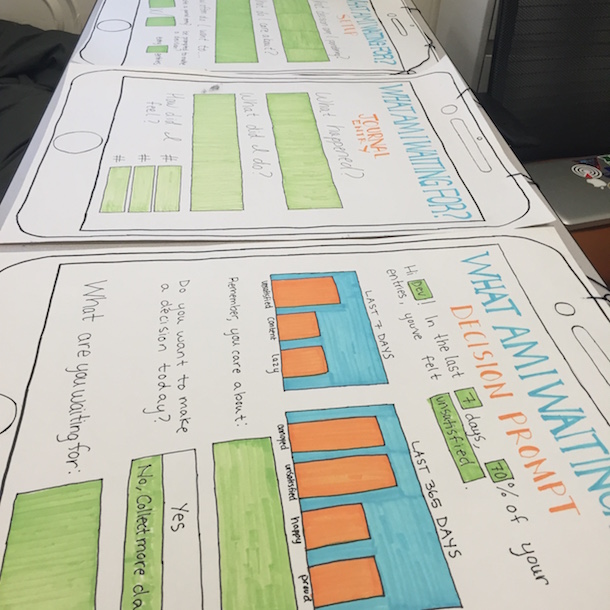 WHAT AM I WAITING FOR?
What do I care about?
WHAT AM I WAITING FOR?
JOURNAL
ENTRY
What happened?
What did I do?
How did I
feel?
#
#
#
WHAT AM I WAITING
DECISION PROMPT
Hi Dev! In the last 7 days, 70% of your
entries, you've felt unsatisfied.
LAST 7 DAYS
unsatisfied content lazy
LAST 365 DAYS
unsatisfied happy proud
Remember, you care about:
Do you want to make
a decision today?
Yes
No, Collect more da
What are you waiting for: